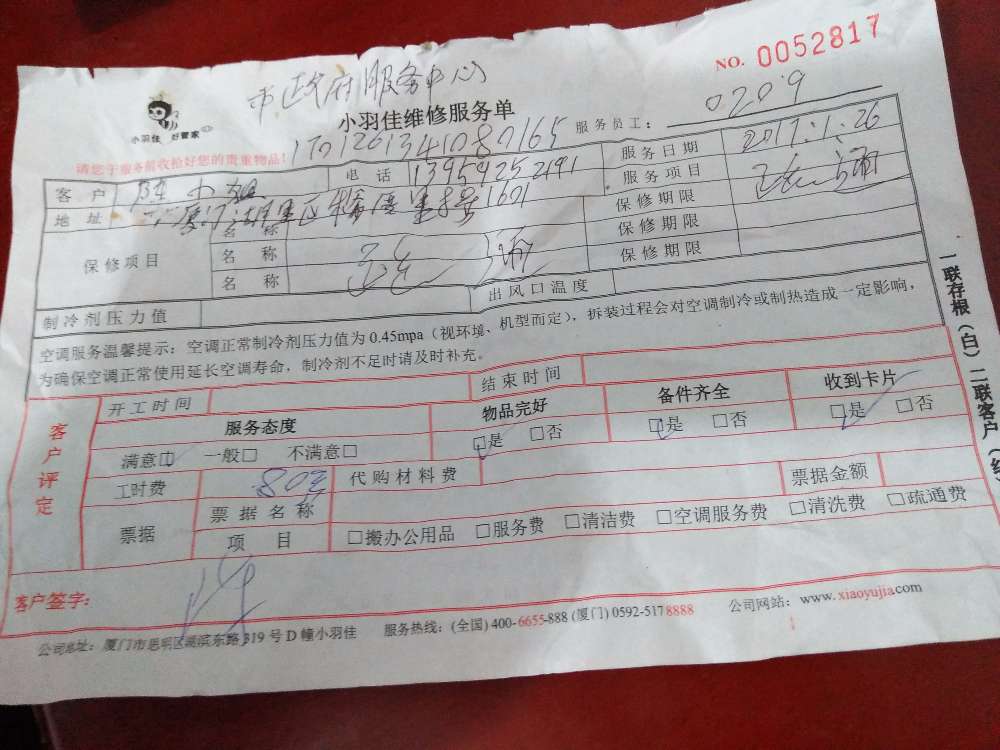 NO. 0052817
市政府服务中心
小羽佳 好管家
小羽佳维修服务单
服务员工： 0209
请您于服务前收拾好您的贵重物品！
客 户 陈小姐 电 话 13959252191 服务日期 2017.1.26
地 址 1601 服务项目
保修项目 名 称 保修期限
名 称 保修期限
名 称 保修期限
制冷剂压力值 出风口温度
空调服务温馨提示：空调正常制冷剂压力值为 0.45mpa（视环境、机型而定），拆装过程会对空调制冷或制热造成一定影响，
为确保空调正常使用延长空调寿命，制冷剂不足时请及时补充。
客户评定
开工时间 结束时间
服务态度 物品完好 备件齐全 收到卡片
满意□ 一般□ 不满意□ □是 □否 □是 □否 □是 □否
工时费 80 代购材料费 票据金额
票据 票据名称
项 目 □搬办公用品 □服务费 □清洁费 □空调服务费 □清洗费 □疏通费
客户签字：
公司地址：厦门市思明区湖滨东路 319 号 D 幢小羽佳 服务热线：(全国) 400-6655-888 (厦门) 0592-5178888 公司网站：www.xiaoyujia.com
一联存根（白）二联客户（